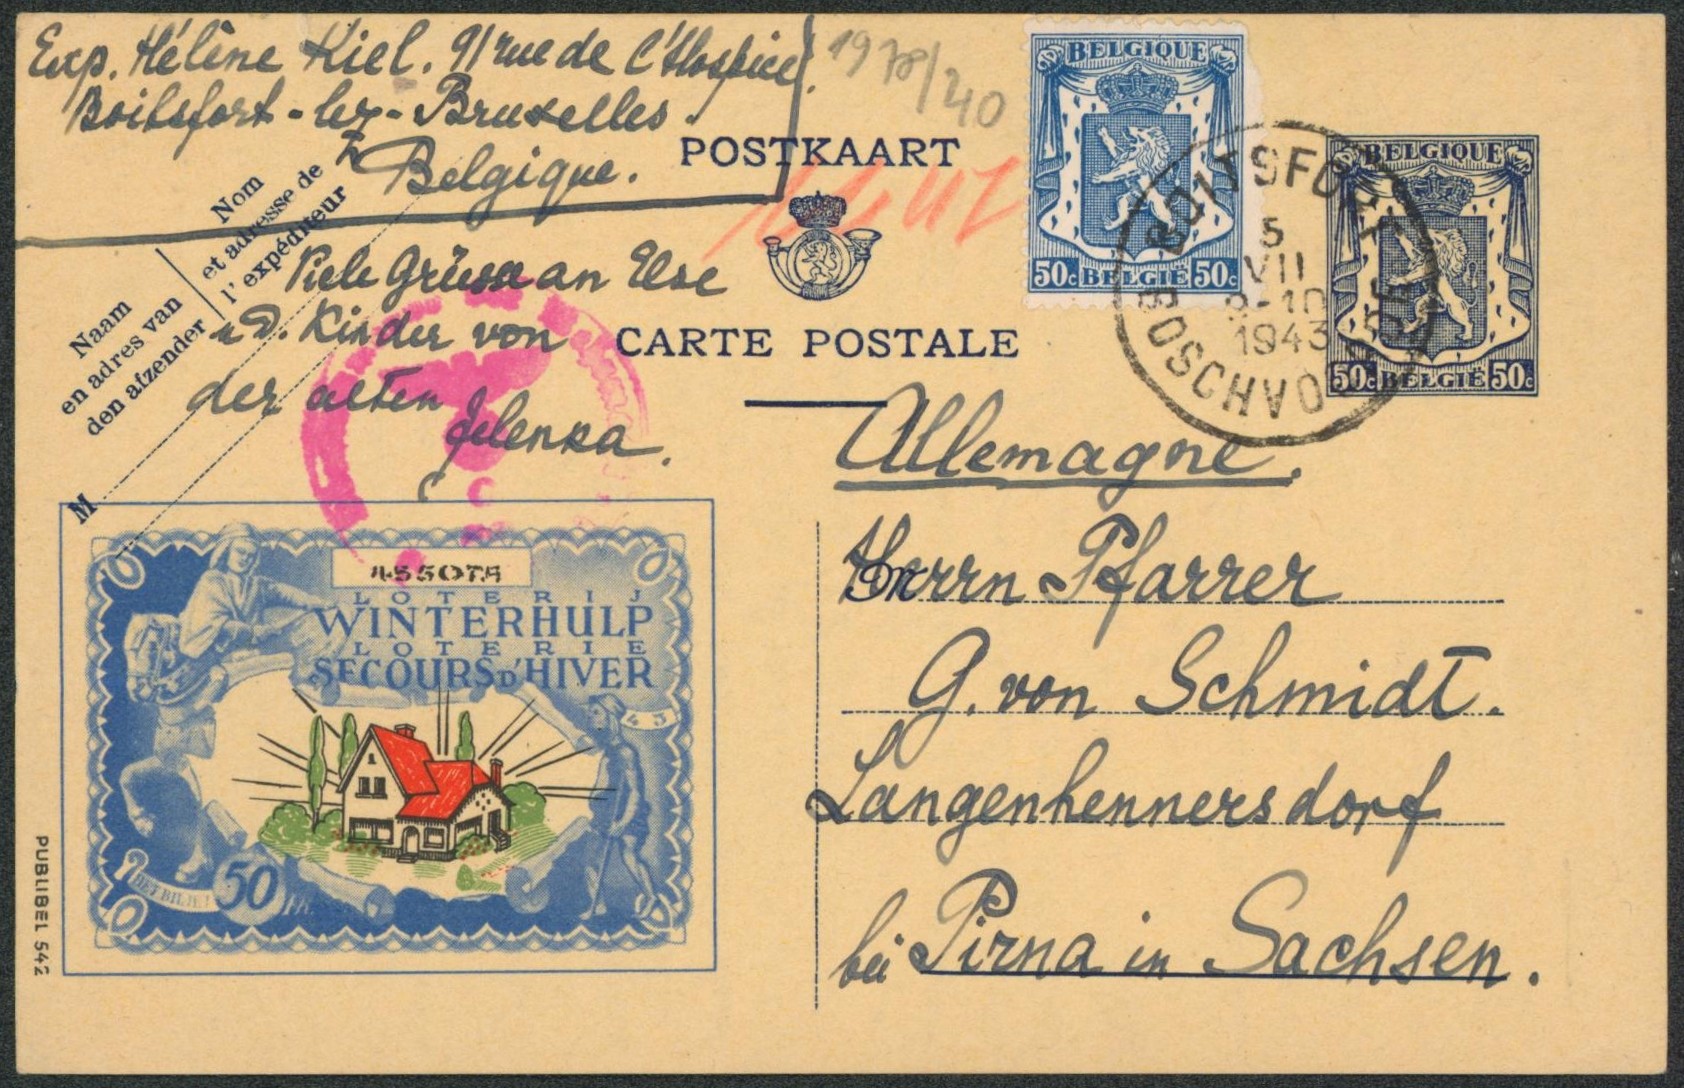 Exp. Hélène Kiel. 91 rue de l'Hospice.
Boitsfort-lez-Bruxelles.
Belgique.
1978/40
Nom
et adresse de
l'expéditeur
Naam
en adres van
den afzender
M
POSTKAART
CARTE POSTALE
BELGIQUE
50c BELGIË 50c
BELGIQUE
50c BELGIË 50c
BOITSFORT
5
VII
1943
BOSCHVOORDE
Viele Grüsse an Else
u d. Kinder von
der alten
Jelenka.
Allemagne.
Herrn Pfarrer
G. von Schmidt.
Langenhennersdorf
bei Pirna in Sachsen.
LOTERIJ
WINTERHULP
LOTERIE
SECOURS D'HIVER
HET BILJET
50 FR.
PUBLIBEL 542